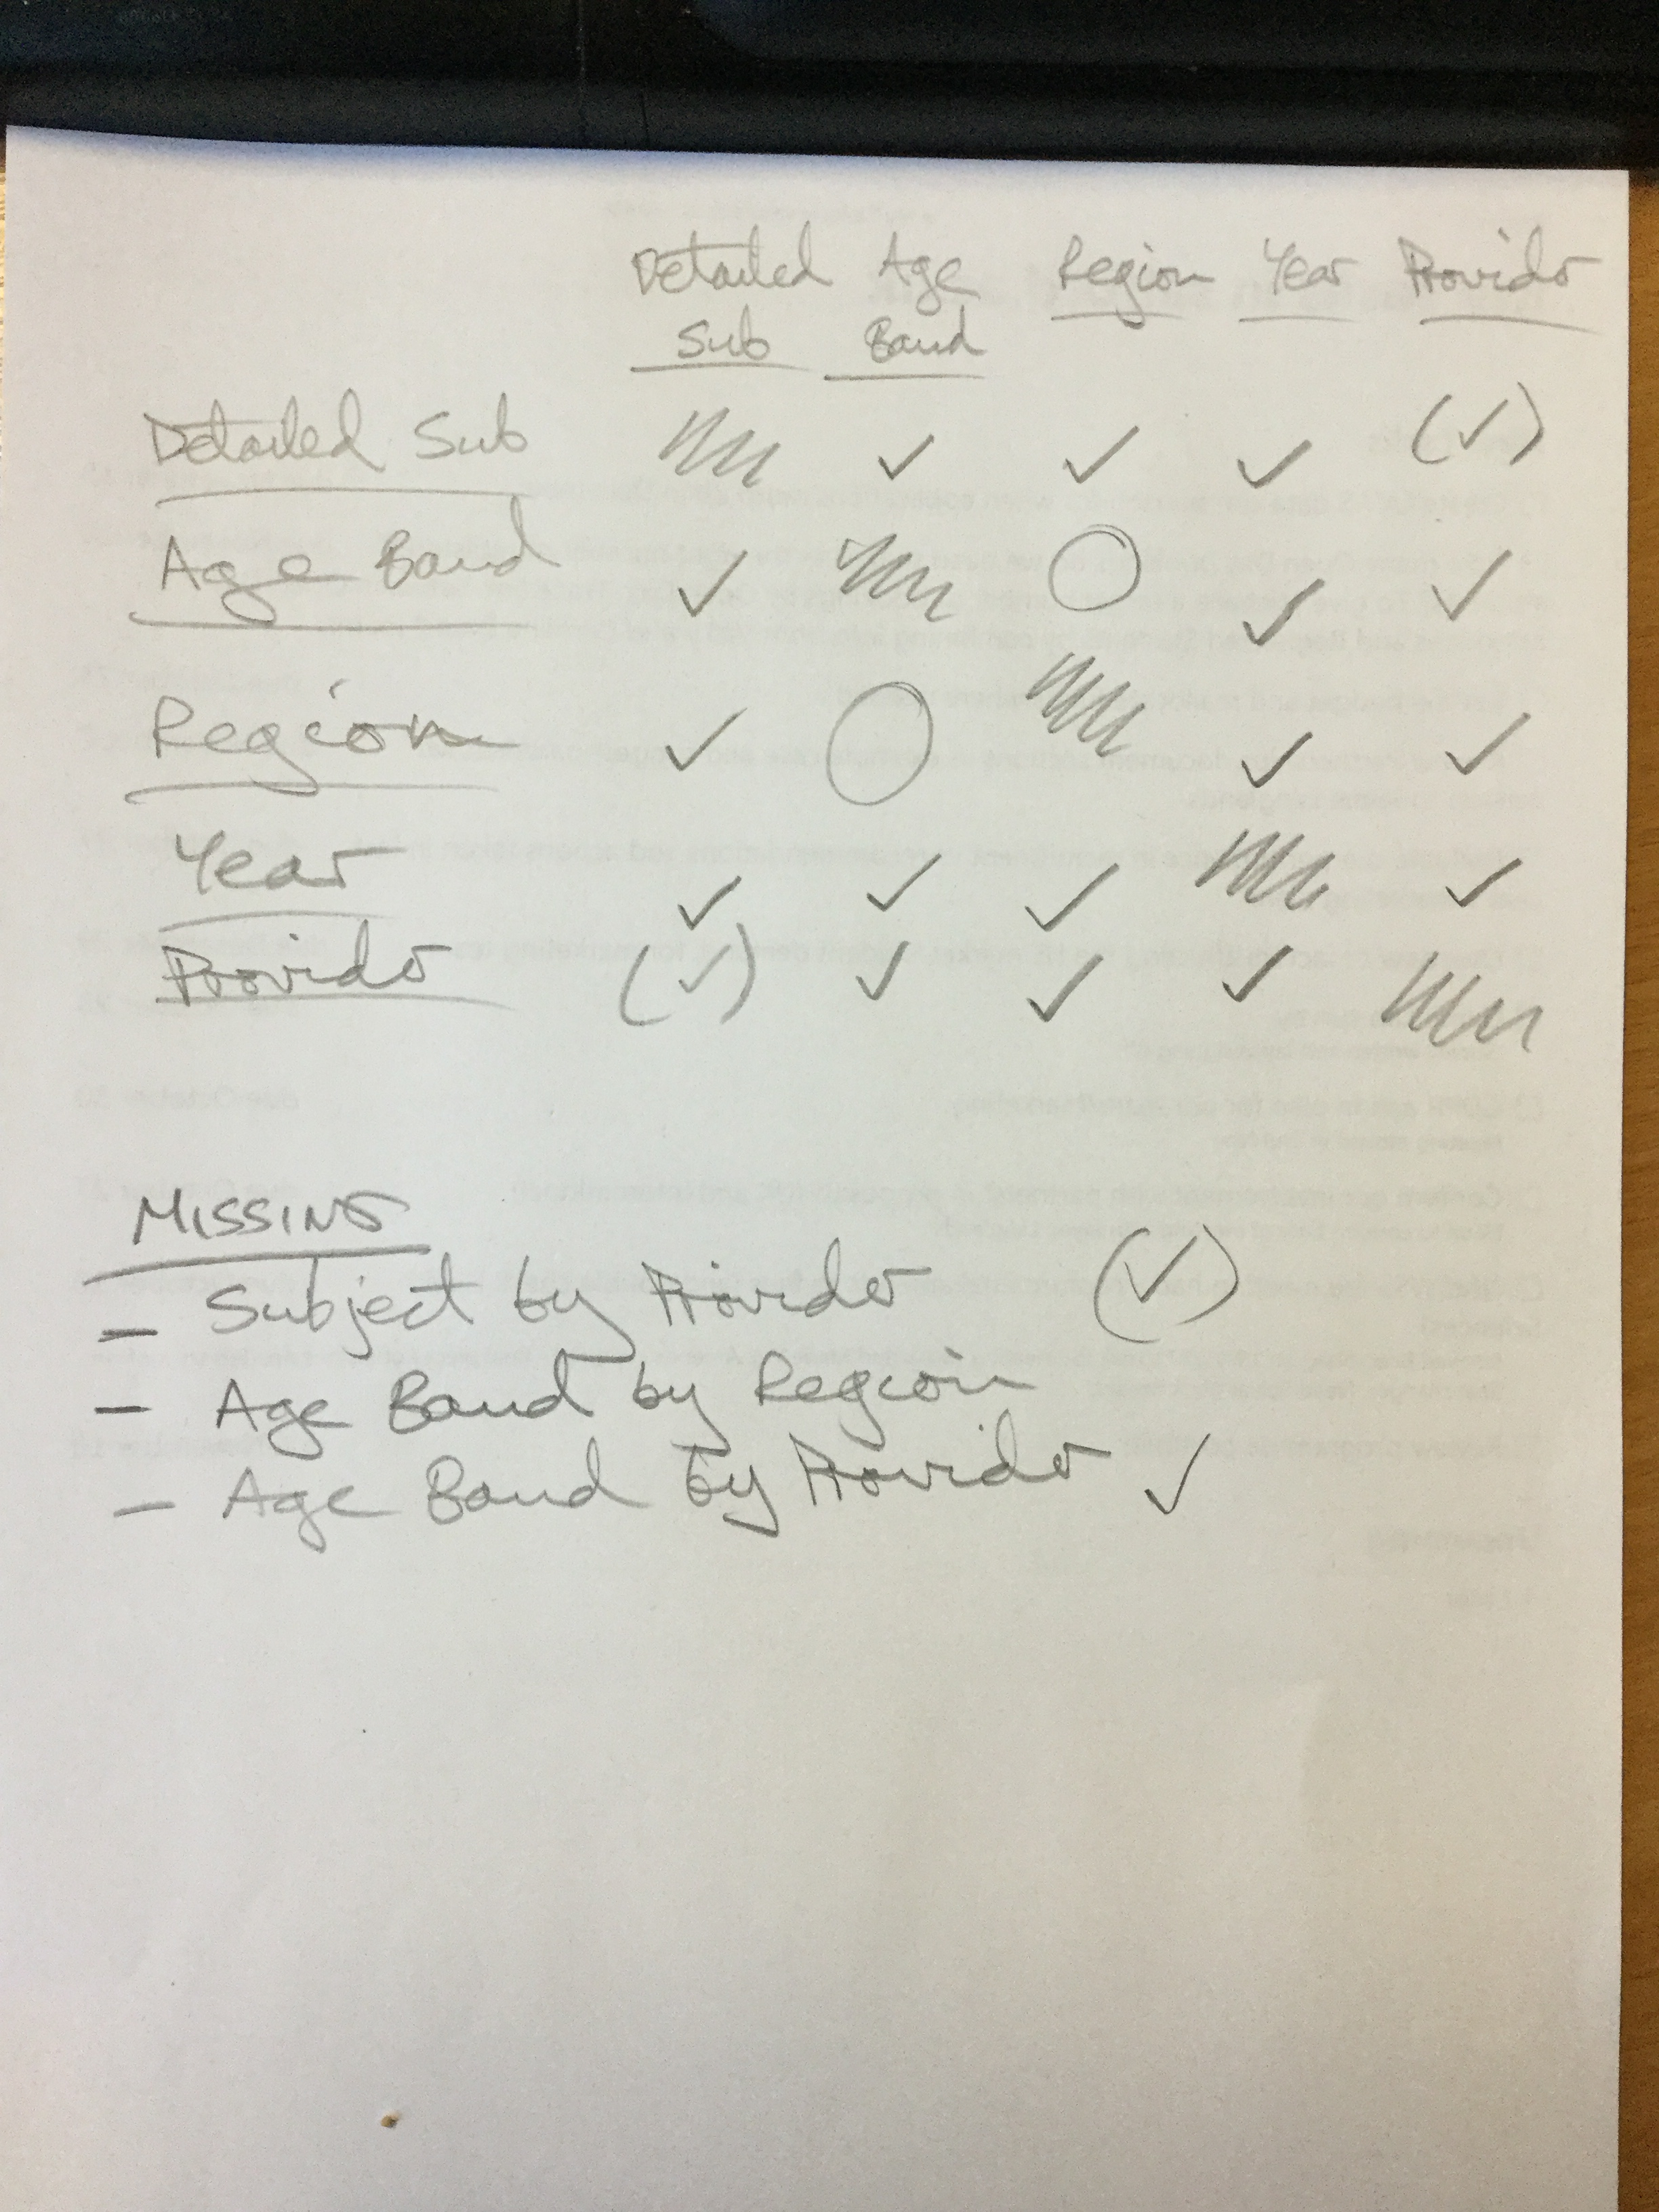 Detailed Age Region Year Provider
Sub Band
Detailed Sub ✓ ✓ ✓ (✓)
Age Band ✓ ○ ✓ ✓
Region ✓ ○ ✓ ✓
Year ✓ ✓ ✓ ✓
Provider (✓) ✓ ✓ ✓
MISSING
- Subject by Provider (✓)
- Age Band by Region
- Age Band by Provider ✓